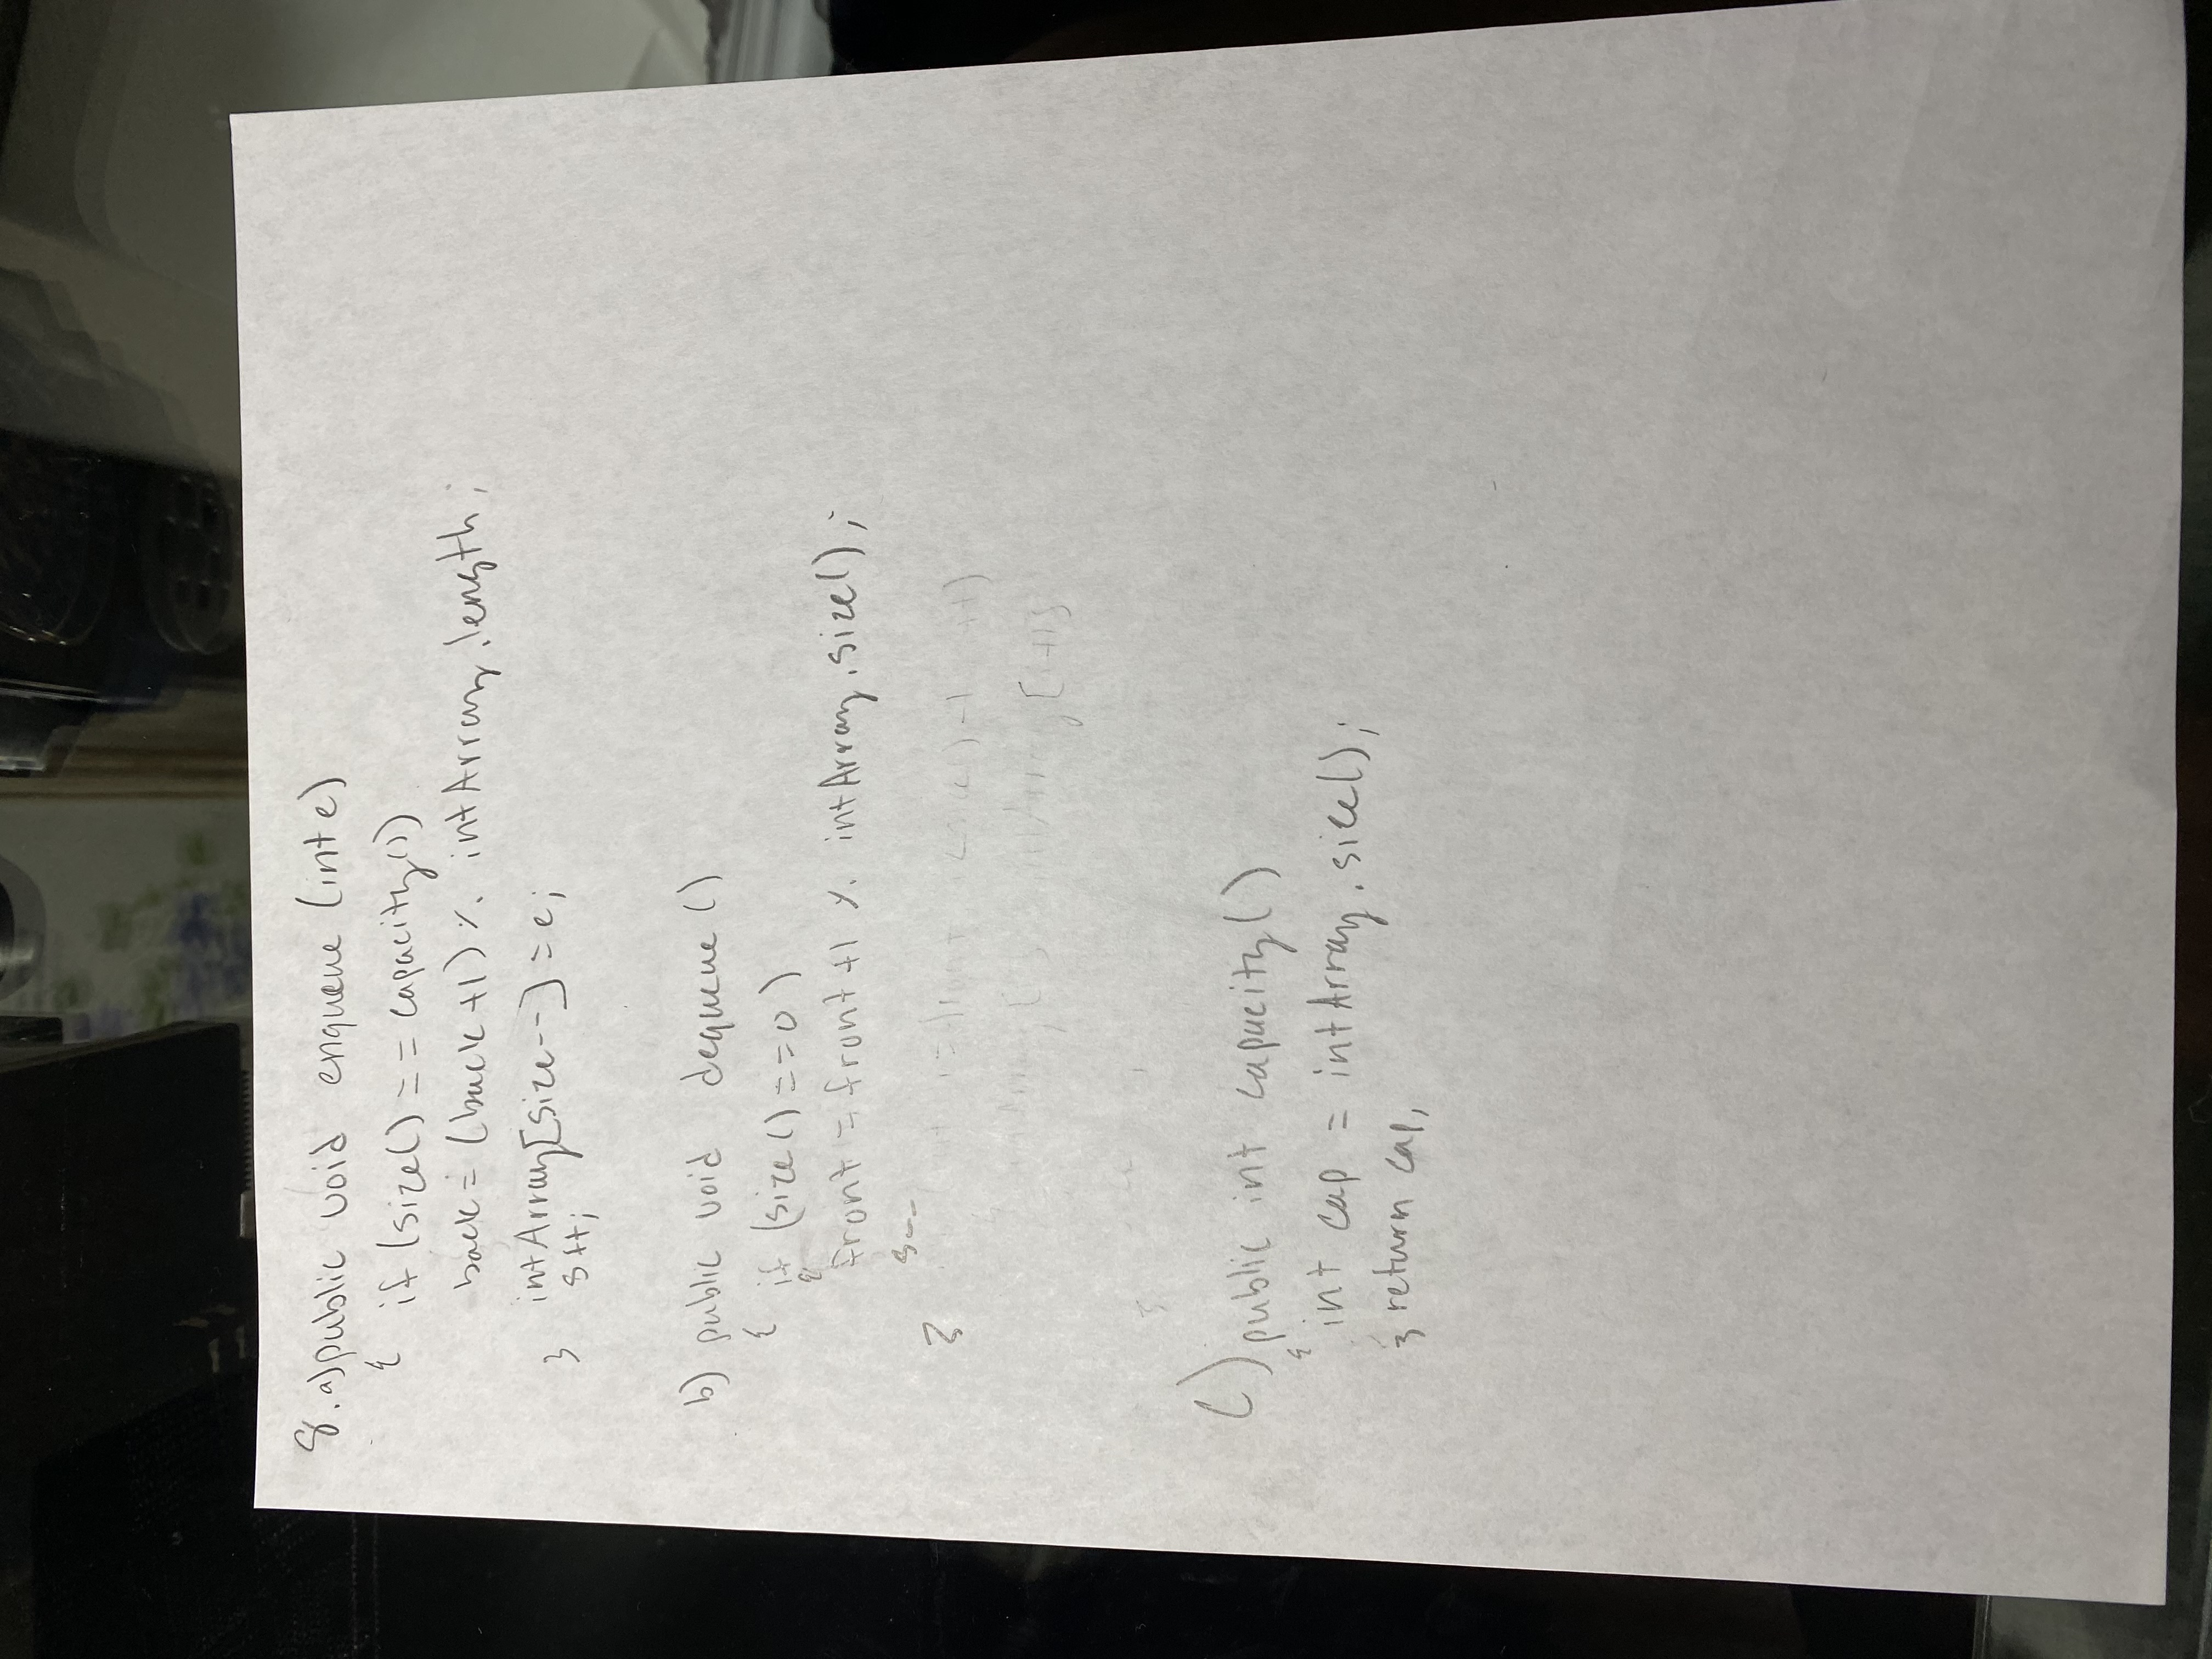 8. a) public void enqueue (int e)
{ if (size() == capacity())
back = (back +1) % intArray.length;
intArray[size--] = e;
} s++;
b) public void dequeue ()
{ if (size() == 0)
{
front = front +1 % intArray.size();
s--
}
[i+1]
C) public int capacity()
{
int cap = intArray.size();
} return cap,